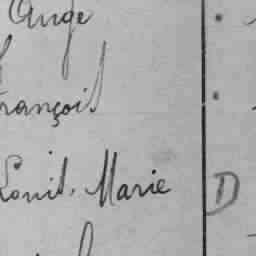 Ange
François
Louis, Marie D